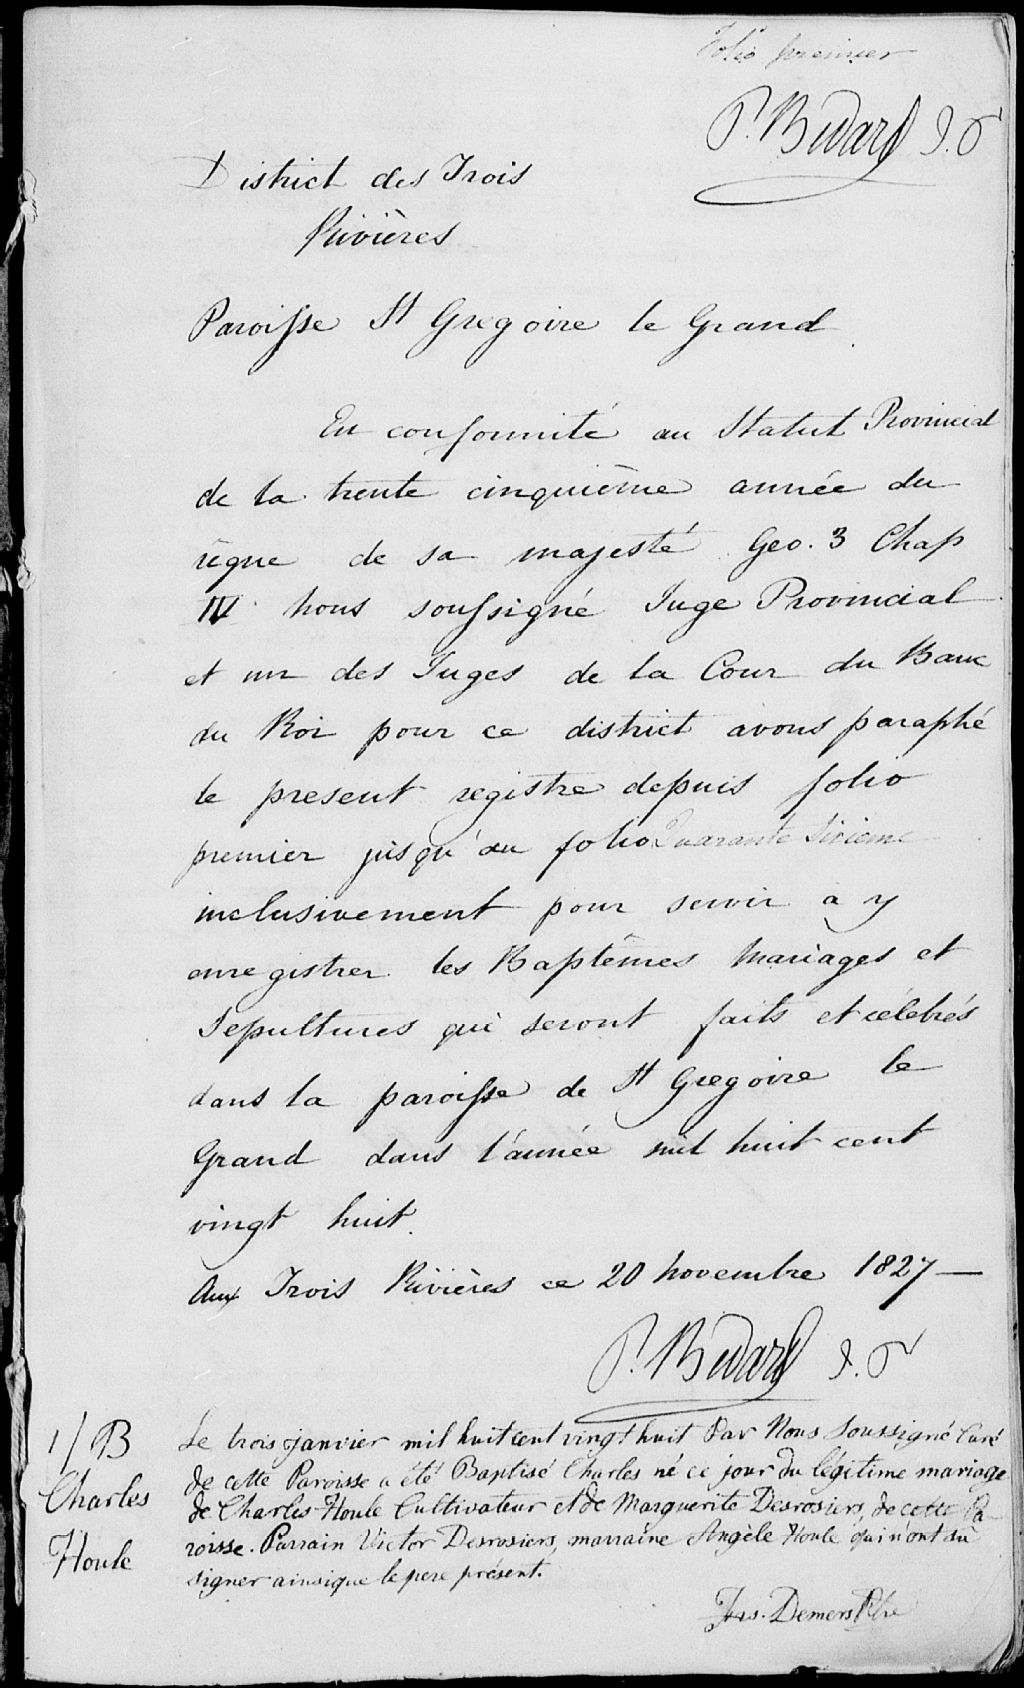 Folio premier
P. Bedard J. P
District des Trois
Rivières
Paroisse St Gregoire le Grand
En conformité au Statut Provincial
de la trente cinquième année du
règne de sa majesté Geo. 3 Chap
IV nous soussigné Juge Provincial
et un des Juges de la Cour du Banc
du Roi pour ce district avons paraphé
le present registre depuis folio
premier jusqu'au folio Quarante Sixieme
inclusivement pour servir a y
enregistrer les Baptêmes Mariages et
Sepultures qui seront faits et célébrés
dans la paroisse de St Gregoire le
Grand dans l'année mil huit cent
vingt huit.
Aux Trois Rivières ce 20 Novembre 1827 —
P. Bedard J. P
1/ B
Charles
Houle
Le trois janvier mil huit cent vingt huit Par Nous Soussigné Curé
de cette Paroisse a été Baptisé Charles né ce jour du légitime mariage
de Charles Houle Cultivateur et de Marguerite Desrosiers, de cette Pa-
roisse. Parrain Victor Desrosiers, marraine Angèle Houle qui n'ont su
signer ainsique le pere présent.
Jos. Demers Ptre